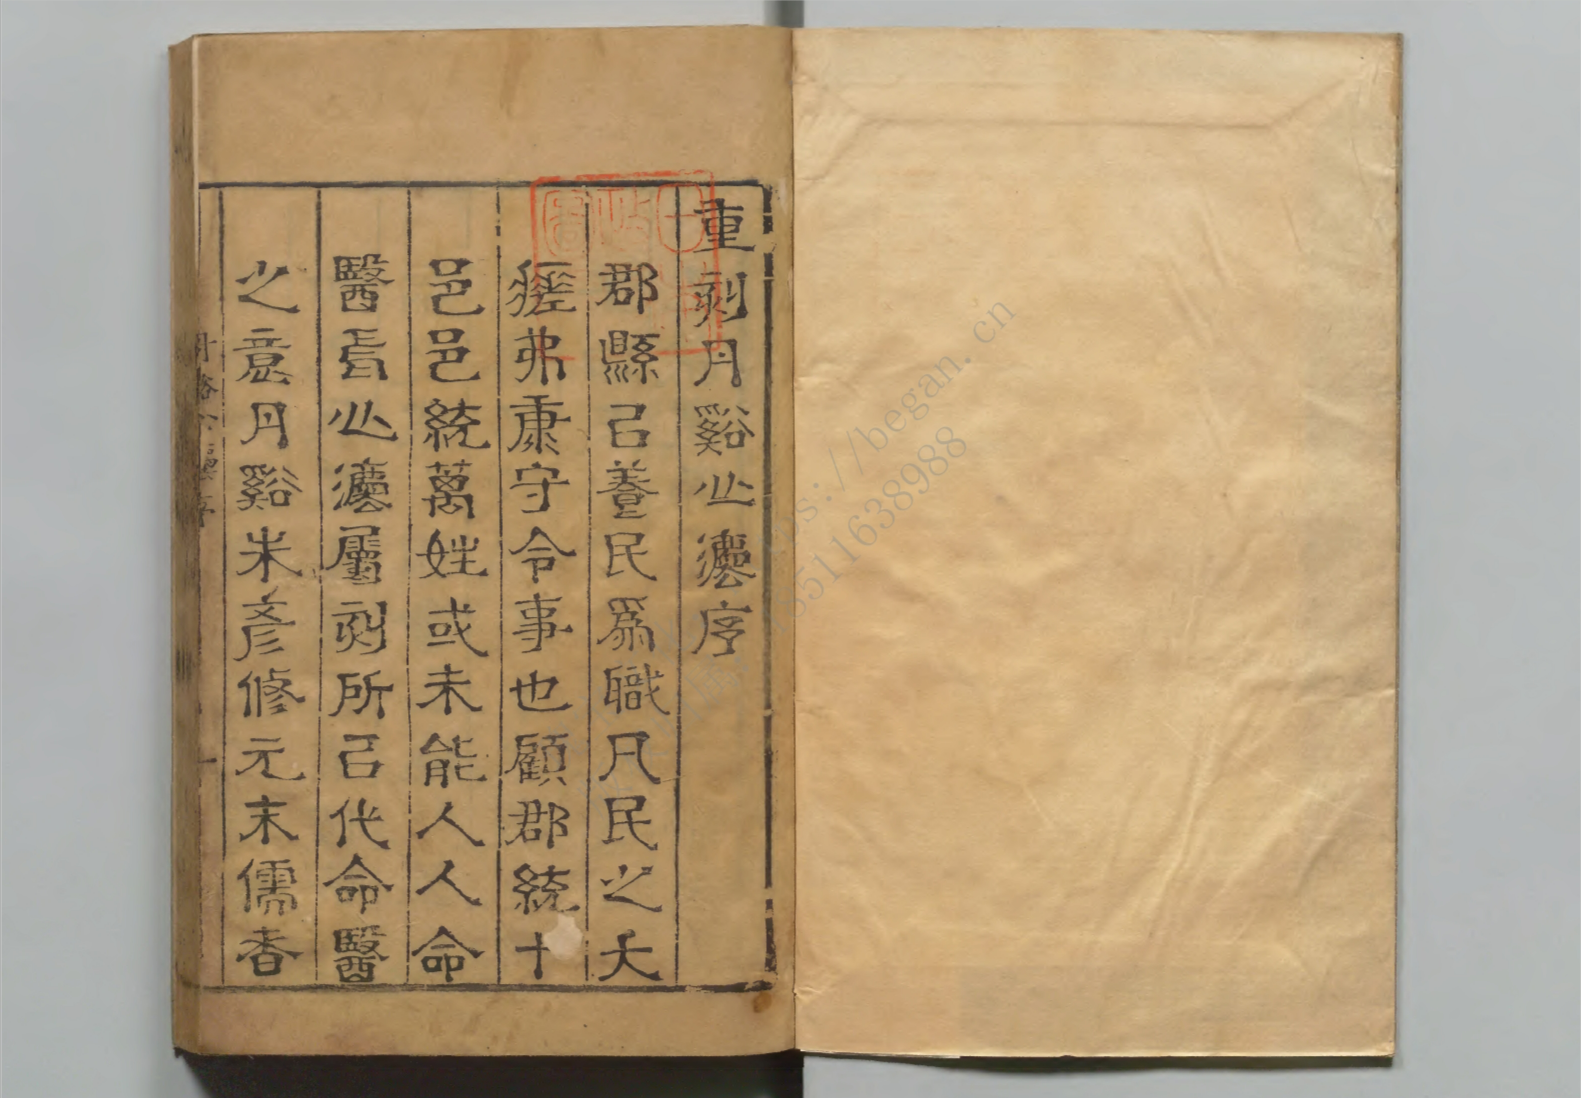 重刻丹谿心灋序
郡縣㠯養民爲職凡民之夭
瘥弗康守令事也顧郡統十
邑邑統萬姓或未能人人命
醫焉心灋屬刻所㠯代命醫
之意丹谿朱彥修元末儒者
丹谿心灋序
一
://began.cn
511638988